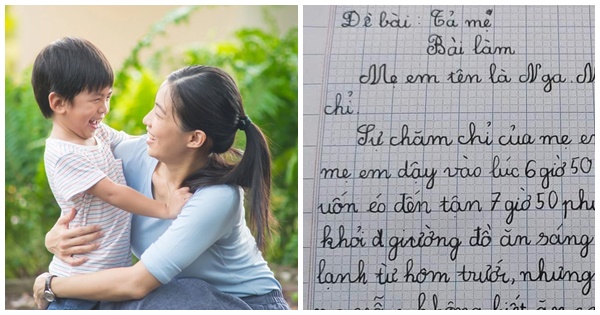 Đề bài: Tả mẹ
Bài làm
Mẹ em tên là Nga. M
chỉ.
Sự chăm chỉ của mẹ e
mẹ em dậy vào lúc 6 giờ 50
uốn éo đến tận 7 giờ 50 phu
khỏi giường đồ ăn sáng
lạnh từ hôm trước, nhưng
không biết ăn